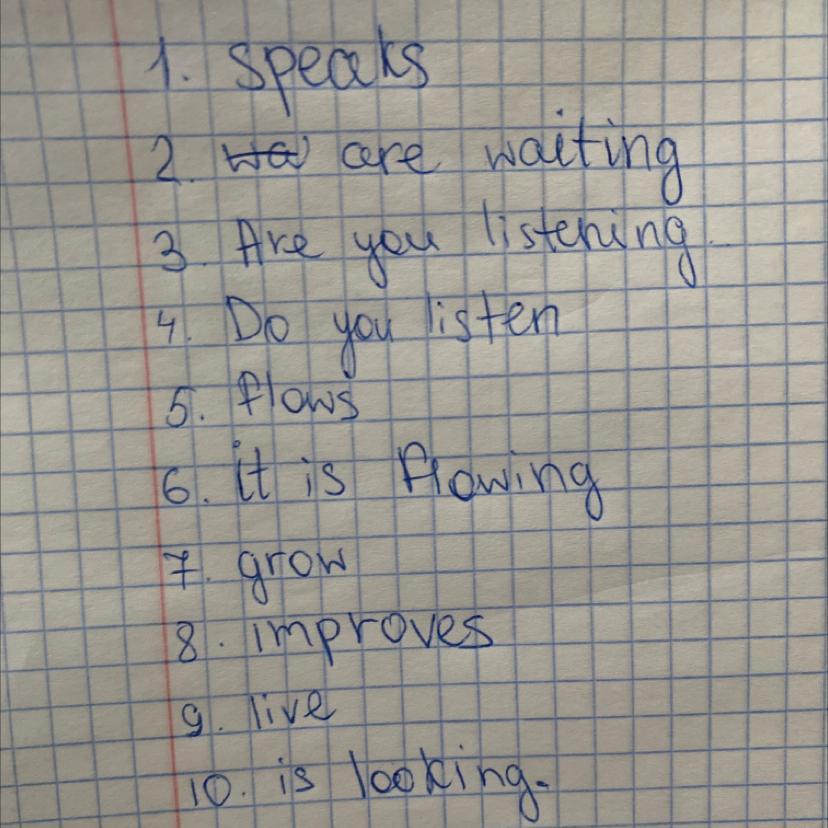 1. speaks
2. are waiting
3. Are you listening.
4. Do you listen
5. flows
6. it is flowing
7. grow
8. improves
9. live
10. is looking.